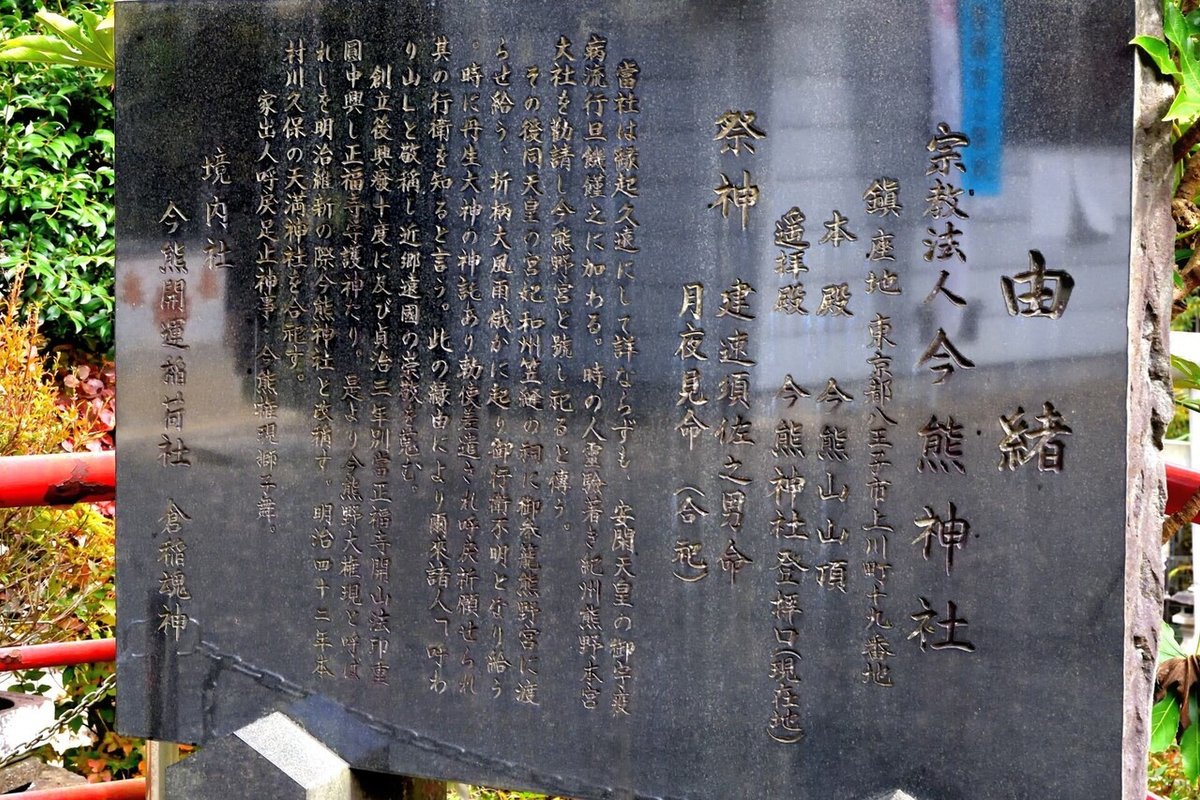 由緒
宗教法人今熊神社
鎮座地 東京都八王子市上川町十九番地
本殿 今熊山山頂
遥拝殿 今熊神社登拝口(現在地)
祭神 建速須佐之男命
月夜見命 (合祀)
當社は縁起久遠にして詳ならずも、安閑天皇の御宇疫
病流行且饑饉之に加わる。時の人霊験著き紀州熊野本宮
大社を勧請し今熊野宮と號し祀ると傳う。
その後同天皇の宮妃和州笠縫の祠に御参籠熊野宮に渡
らせ給う、折柄大風雨俄かに起り御行衛不明となり給う
。時に丹生大神の神託あり勅使差遣され呼戻祈願せられ
其の行衛を知ると言う。此の縁由により爾来諸人「呼わ
り山」と敬称し近郷遠國の崇敬を蒐む。
創立後興癈十度に及び貞治三年別當正福寺開山法印重
圓中興し正福寺守護神たり。是より今熊野大権現と呼ば
れしを明治維新の際今熊神社と改稱す。明治四十二年本
村川久保の天満神社を合祀す。
家出人呼戻足止神事 今熊権現獅子舞。
境内社
今熊開運稲荷社 倉稲魂神